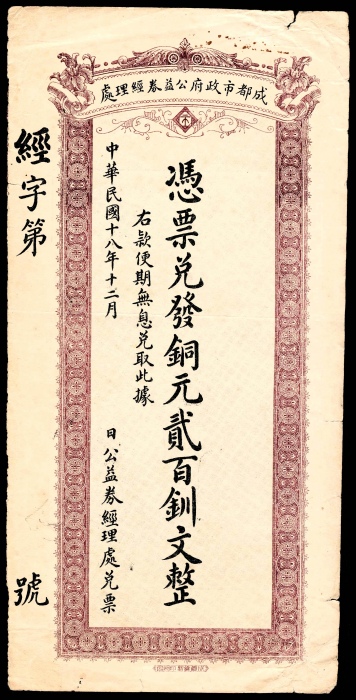 成都市政府公益券經理處
憑票兑發銅元貳百釧文整
右款便期無息兑取此據
中華民國十八年十二月 日公益券經理處兑票
經字第 號